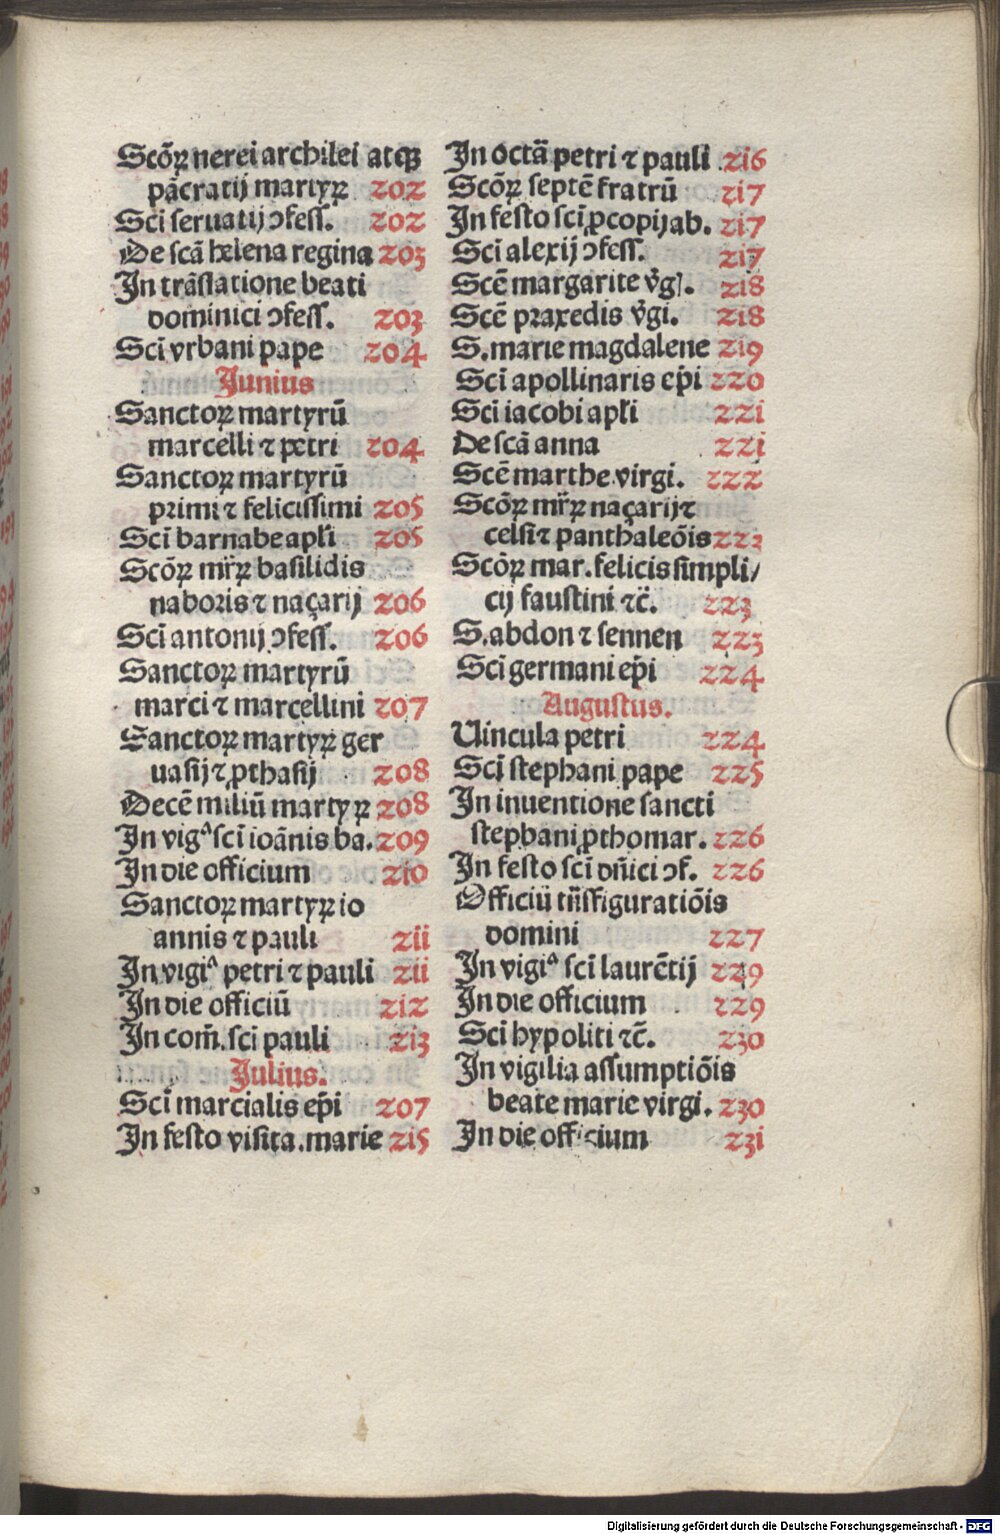 Scõꝝ nerei archilei atqꝫ
pãcratij martyꝝ 202
Scĩ seruatij ↄfess. 202
De scã helena regina 203
In trãslatione beati
dominici ↄfess. 203
Scĩ vrbani pape 204
Junius
Sanctoꝝ martyrũ
marcelli ⁊ petri 204
Sanctoꝝ martyrũ
primi ⁊ felicissimi 205
Scĩ barnabe apl̃i 205
Scõꝝ mr̃ꝝ basilidis
naboris ⁊ naçarij 206
Scĩ antonij ↄfess. 206
Sanctoꝝ martyrũ
marci ⁊ marcellini 207
Sanctoꝝ martyꝝ ger
uasij ⁊ ꝓthasij 208
Decẽ miliũ martyꝝ 208
In vigᵃ scĩ ioãnis ba. 209
In die officium 210
Sanctoꝝ martyꝝ io
annis ⁊ pauli 211
In vigiᵃ petri ⁊ pauli 211
In die officiũ 212
In com̃. sci pauli 213
Julius.
Scĩ marcialis ep̃i 207
In festo visita. marie 215
In octã petri ⁊ pauli 216
Scõꝝ septẽ fratrũ 217
In festo scĩ ꝓcopij ab. 217
Sci alexij ↄfess. 217
Scẽ margarite ṽgĩ. 218
Scẽ praxedis ṽgi. 218
S. marie magdalene 219
Sci apollinaris ep̃i 220
Sci iacobi apl̃i 221
De scã anna 221
Scẽ marthe virgi. 222
Scõꝝ mr̃ꝝ naçarij ⁊
celsi ⁊ panthaleõis 223
Scõꝝ mar. felicis simpli/
cij faustini ⁊c̃. 223
S. abdon ⁊ sennen 223
Sci germani ep̃i 224
Augustus.
Uincula petri 224
Scĩ stephani pape 225
In inuentione sancti
stephani ꝓthomar. 226
In festo scĩ dñici ↄf. 226
Officiũ tñsfiguratiõis
domini 227
In vigiᵃ scĩ laurẽtij 229
In die officium 229
Sci hypoliti ⁊c̃. 230
In vigilia assumptiõis
beate marie virgi. 230
In die officium 231
Digitalisierung gefördert durch die Deutsche Forschungsgemeinschaft - DFG